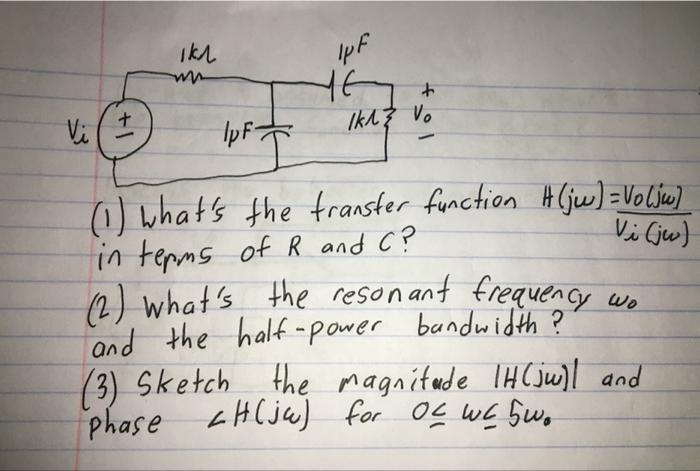 1kΩ 1μF
+
Vi + - 1μF 1kΩ Vo
-
(1) what's the transfer function H(jω) = Vo(jω)
in terms of R and C? Vi (jω)
(2) what's the resonant frequency ωo
and the half-power bandwidth?
(3) Sketch the magnitude |H(jω)| and
phase ∠H(jω) for 0≤ ω≤ 5ωo